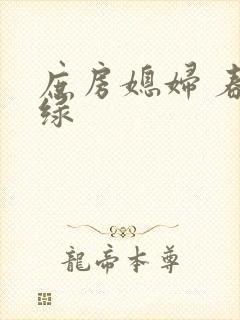 庶房媳婦 春
绿
龍帝本尊